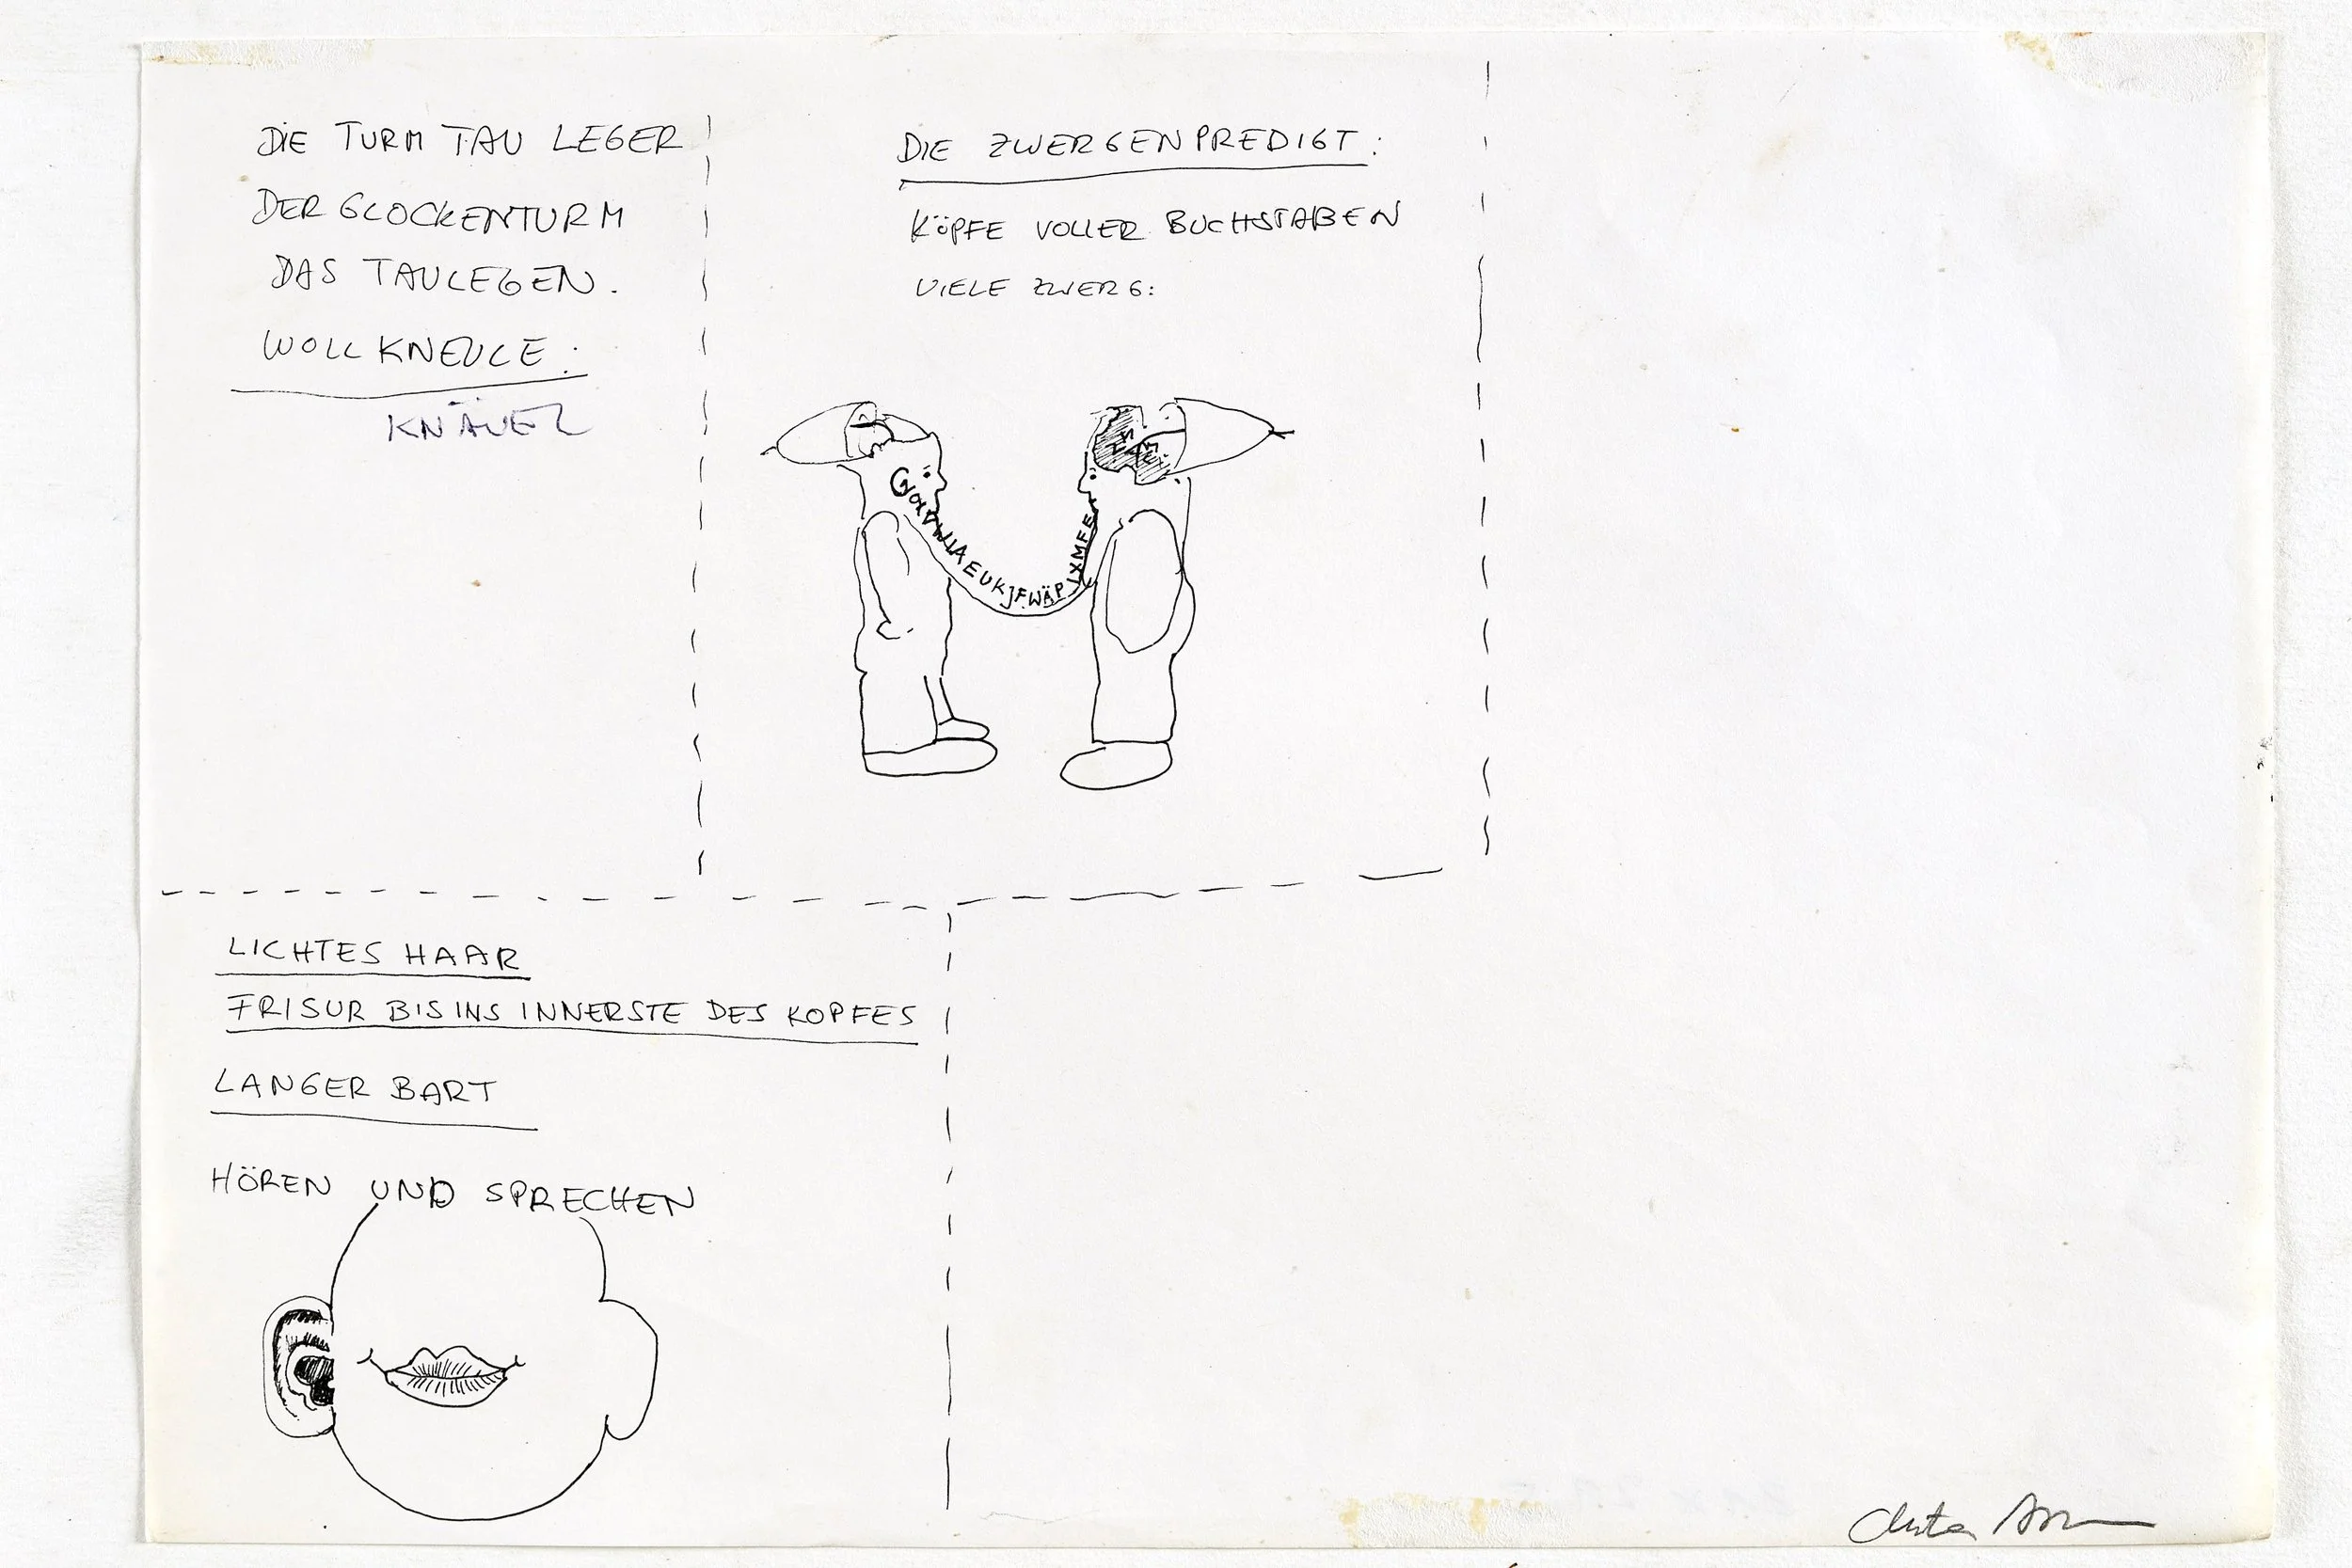 DIE TURM TAU LEGER
DER GLOCKENTURM
DAS TAULEGEN.
WOLLKNEULE:
KNÄUEL
DIE ZWERGENPREDIGT:
KÖPFE VOLLER BUCHSTABEN
VIELE ZWERG:
LICHTES HAAR
FRISUR BIS INS INNERSTE DES KOPFES
LANGER BART
HÖREN UND SPRECHEN